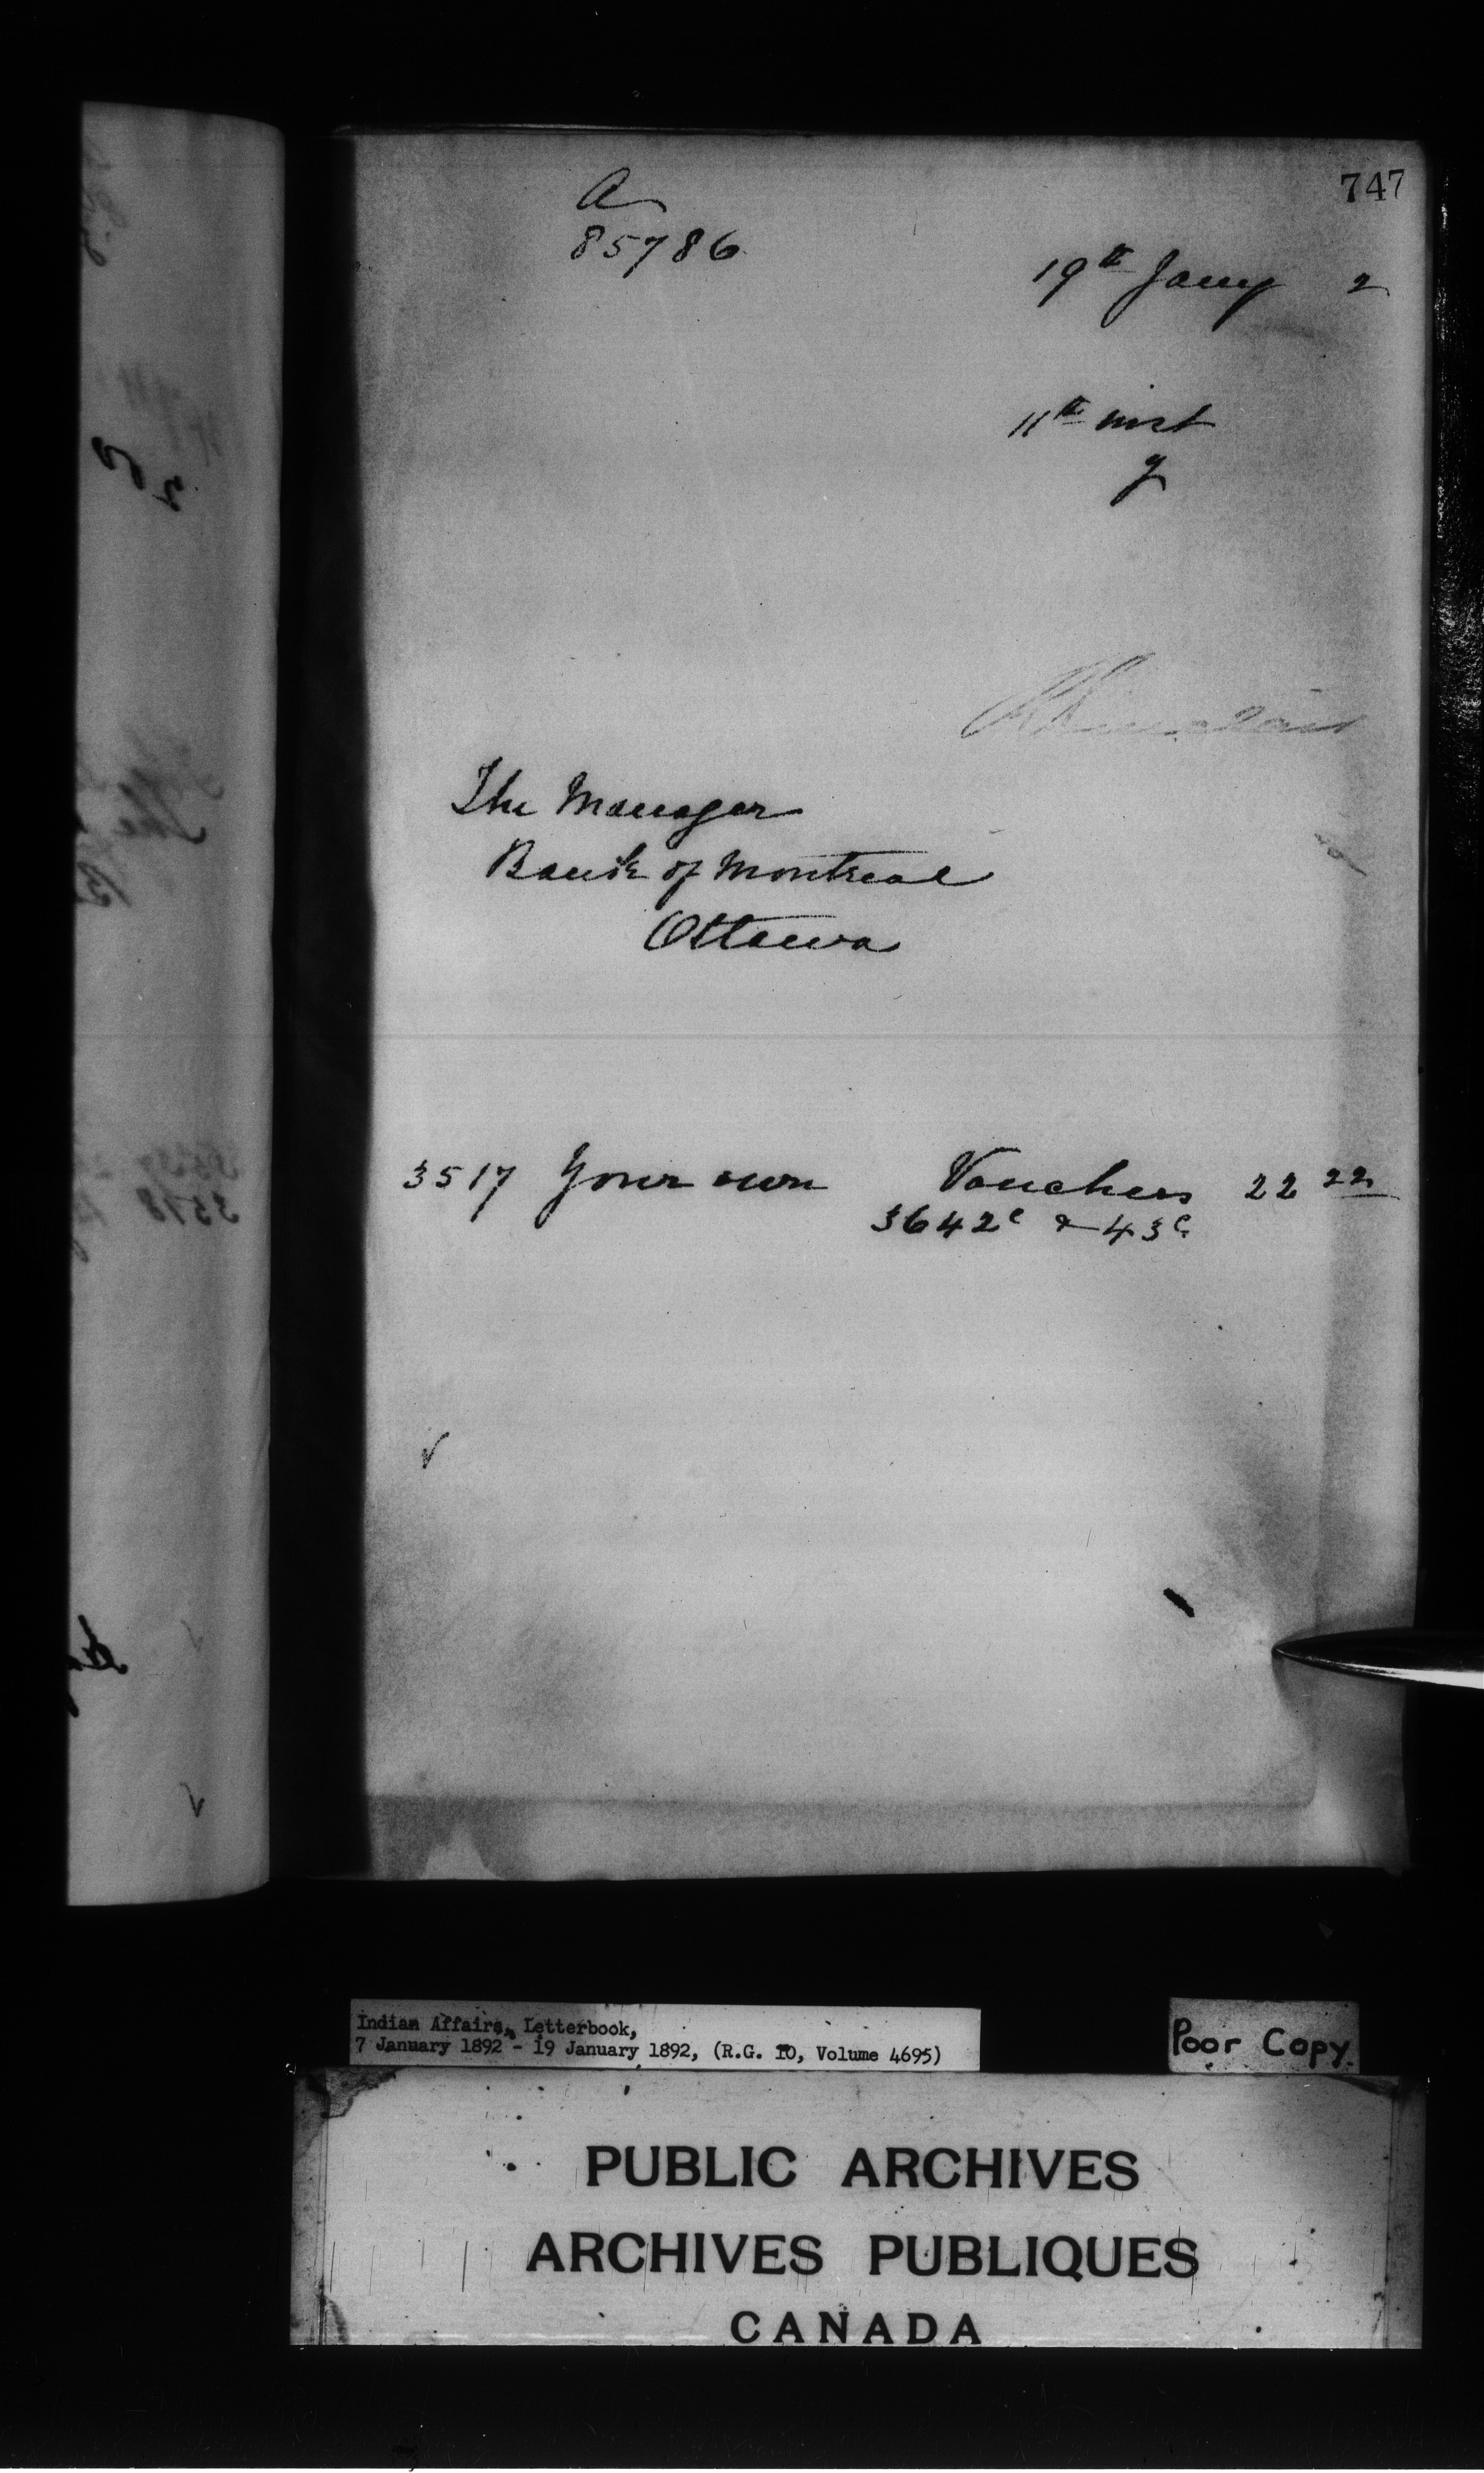 747
A
85786
19th Jany 2
11th inst
y
The Manager
Bank of Montreal
Ottawa
3517 Your own Vouchers 22 22
3642c & 43c
Indian Affairs, Letterbook,
7 January 1892 - 19 January 1892, (R.G. 10, Volume 4695)
Poor Copy.
PUBLIC ARCHIVES
ARCHIVES PUBLIQUES
CANADA